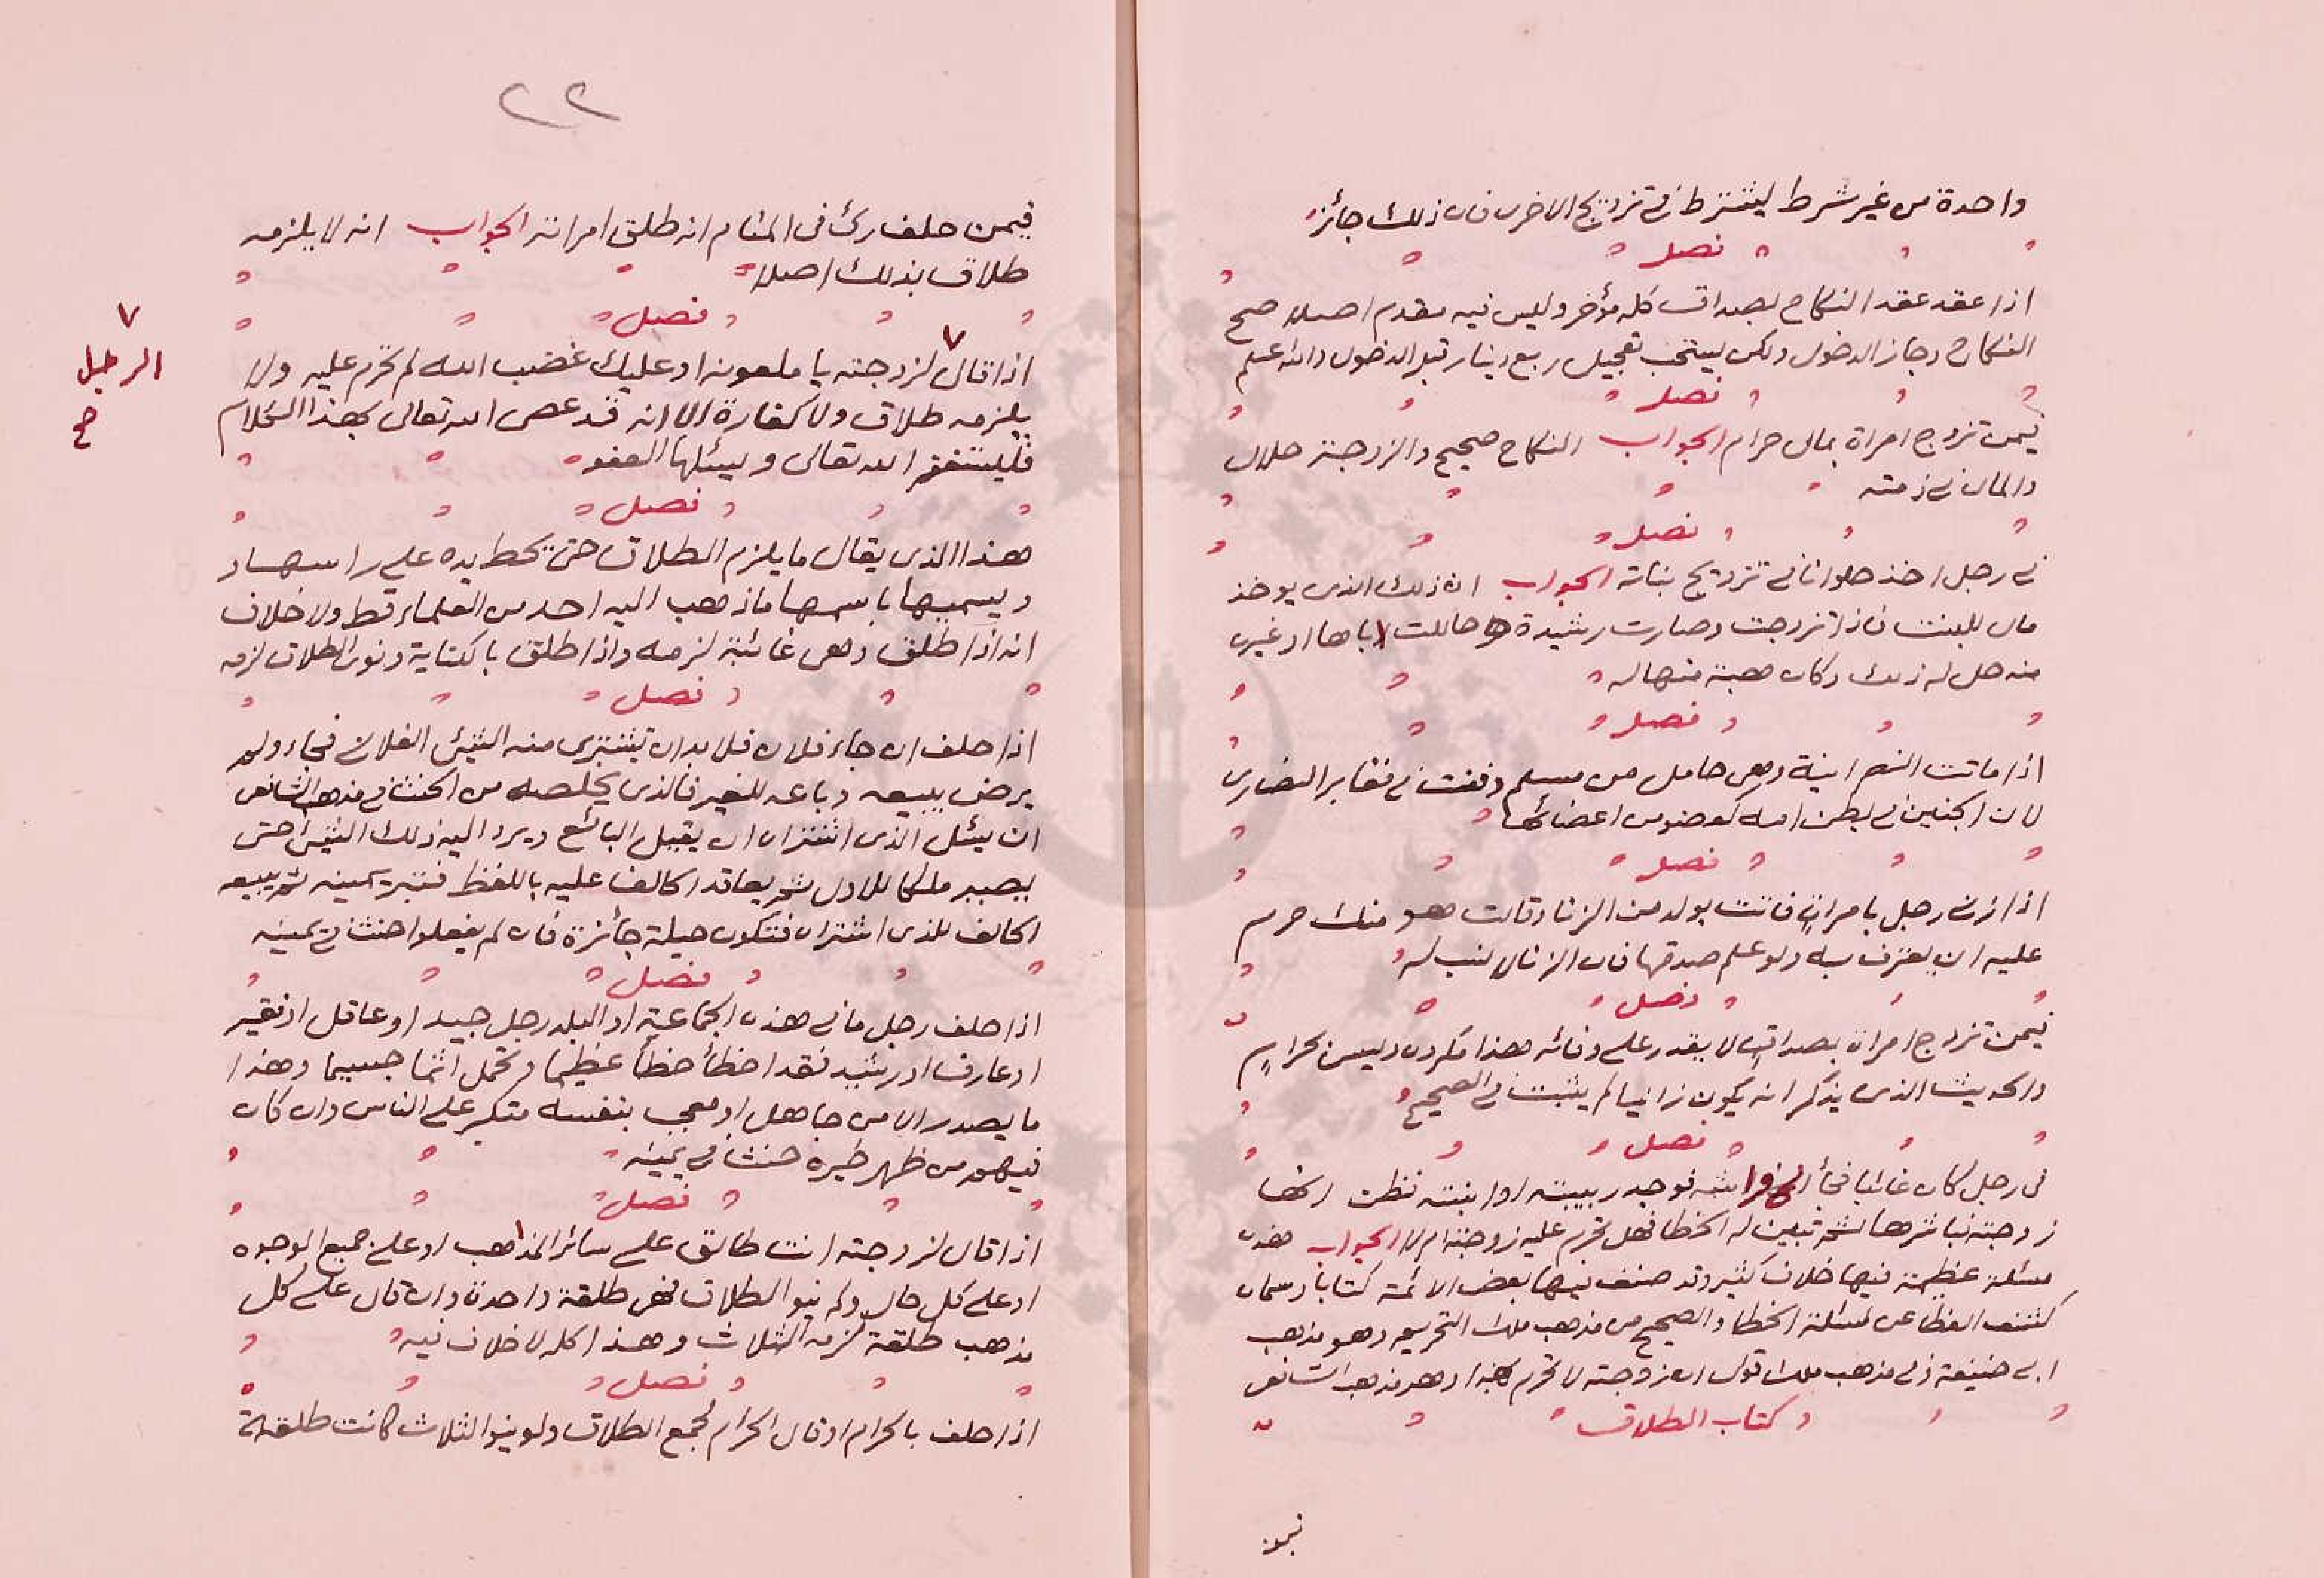 واحدة من غير شرط ليشترط في تزويج الاخرى فان ذلك جائز
فصل
اذا عقد عقد النكاح بصداق كله مؤخر وليس فيه مقدم اصلا صح
النكاح وجاز الدخول ولكن يستحب تعجيل ربع دينار قبل الدخول والله اعلم
فصل
فيمن تزوج امراة بمال حرام الجواب النكاح صحيح والزوجة حلال
والمال في ذمته
فصل
في رجل اخذ حلوانا في تزويج بناته الجواب ان ذلك الذي يوخذ
مال للبنت فاذا تزوجت وصارت رشيدة حاللت اباها او غيره
منه حل له ذلك وكان هبة منها له
فصل
اذا ماتت النصرانية وهي حامل من مسلم دفنت في مقابر النصارى
لان الجنين في بطن امه كعضو من اعضائها
فصل
اذا زنى رجل بامراة فاتت بولد من الزنا وقالت هو منك حرم
عليه ان يعترف به ولو علم صدقها فان الزنا لا نسب له
فصل
فيمن تزوج امراة بصداق لا يقدر على وفائه هذا مكروه وليس بحرام
والحديث الذي يذكر انه يكون زانيا لم يثبت في الصحيح
فصل
في رجل كان غائبا فجأ الى فراشه فوجد ربيبته او ابنته فظن انها
زوجته فباشرها ثم تبين له الخطا فهل تحرم عليه زوجته ام لا الجواب هذه
مسئلة عظيمة فيها خلاف كثير وقد صنف فيها بعض الائمة كتابا وسماه
كشف الغطا عن مسئلة الخطا والصحيح من مذهب ملك التحريم وهو مذهب
ابي حنيفة وفي مذهب ملك قول ان زوجته لا تحرم بهذا وهو مذهب الشافعي
كتاب الطلاق
فيمن
٢٢
فيمن حلف رئ في المنام انه طلق امراته الجواب انه لا يلزمه
طلاق بذلك اصلا
فصل
اذا قال لزوجته يا ملعونة او عليك غضب الله لم تحرم عليه ولا
الرجل
صح
يلزمه طلاق ولا كفارة الا انه قد عصى الله تعالى بهذا الكلام
فليستغفر الله تعالى ويسئلها العفو
فصل
هذا الذي يقال ما يلزم الطلاق حتى يحط يده على راسها
ويسميها باسمها ما ذهب اليه احد من العلماء قط ولا خلاف
انه اذا طلق وهي غائبة لزمه واذا طلق بالكتاية ونوى الطلاق لزمه
فصل
اذا حلف ان جاء فلان فلا بد ان يشتري منه الشئ الفلاني فجاء ولم
يرض ببيعه وباعه للغير فالذي يخلصه من الحنث في مذهب الشافعي
ان يسئل الذي اشتراه ان يقيل البائع ويرد اليه ذلك الشئ حتى
يصير ملكا للاول ثم يعاقد الحالف عليه باللفظ فتبر يمينه ثم يبيعه
الحالف للذي اشتراه فتكون حيلة جائزة فان لم يفعلوا حنث في يمينه
فصل
اذا حلف رجل ما في هذه الجماعة او البلد رجل جيد او عاقل او فقير
او عارف او رشيد فقد اخطأ خطأ عظيما وتحمل اثما جسيما وهذا
ما يصدر الا من جاهل او معجب بنفسه متكبر على الناس وان كان
فيهم من ظهر خيره حنث في يمينه
فصل
اذا قال لزوجته انت طالق على سائر المذاهب او على جميع الوجوه
او على كل حال ولم ينو الطلاق فهي طلقة واحدة وان قال على كل
مذهب طلقة لزمه الثلاث وهذا كله لا خلاف فيه
فصل
اذا حلف بالحرام او قال الحرام يجمع الطلاق ولو ينو الثلاث كانت طلقة